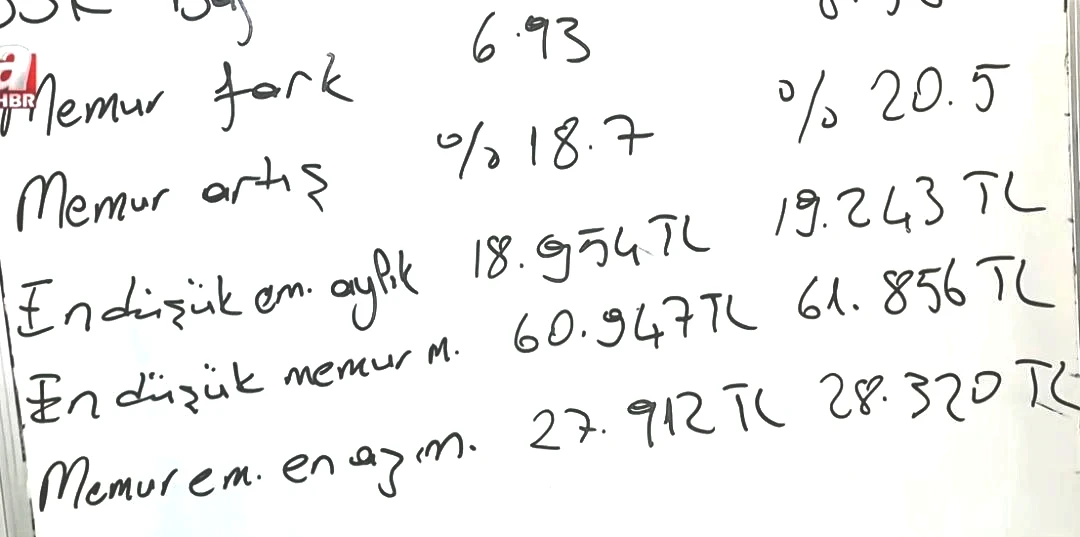 a
HBR
6.93
Memur fark
Memur artış %18.7 %20.5
En düşük em. aylık 18.954 TL 19.243 TL
En düşük memur m. 60.947 TL 61.856 TL
Memur em. en az m. 27.912 TL 28.320 TL